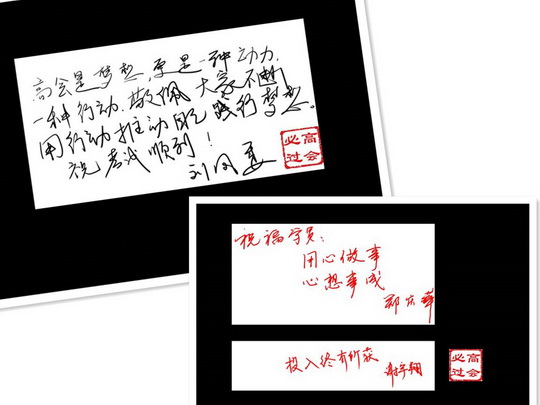 高会是梦想,更是一种动力,
一种行动,敬佩大家不断
用行动推动自己践行梦想。
祝考试顺利!
高会
必过
祝福学员:
用心做事
心想事成
投入终有所获
高会
必过